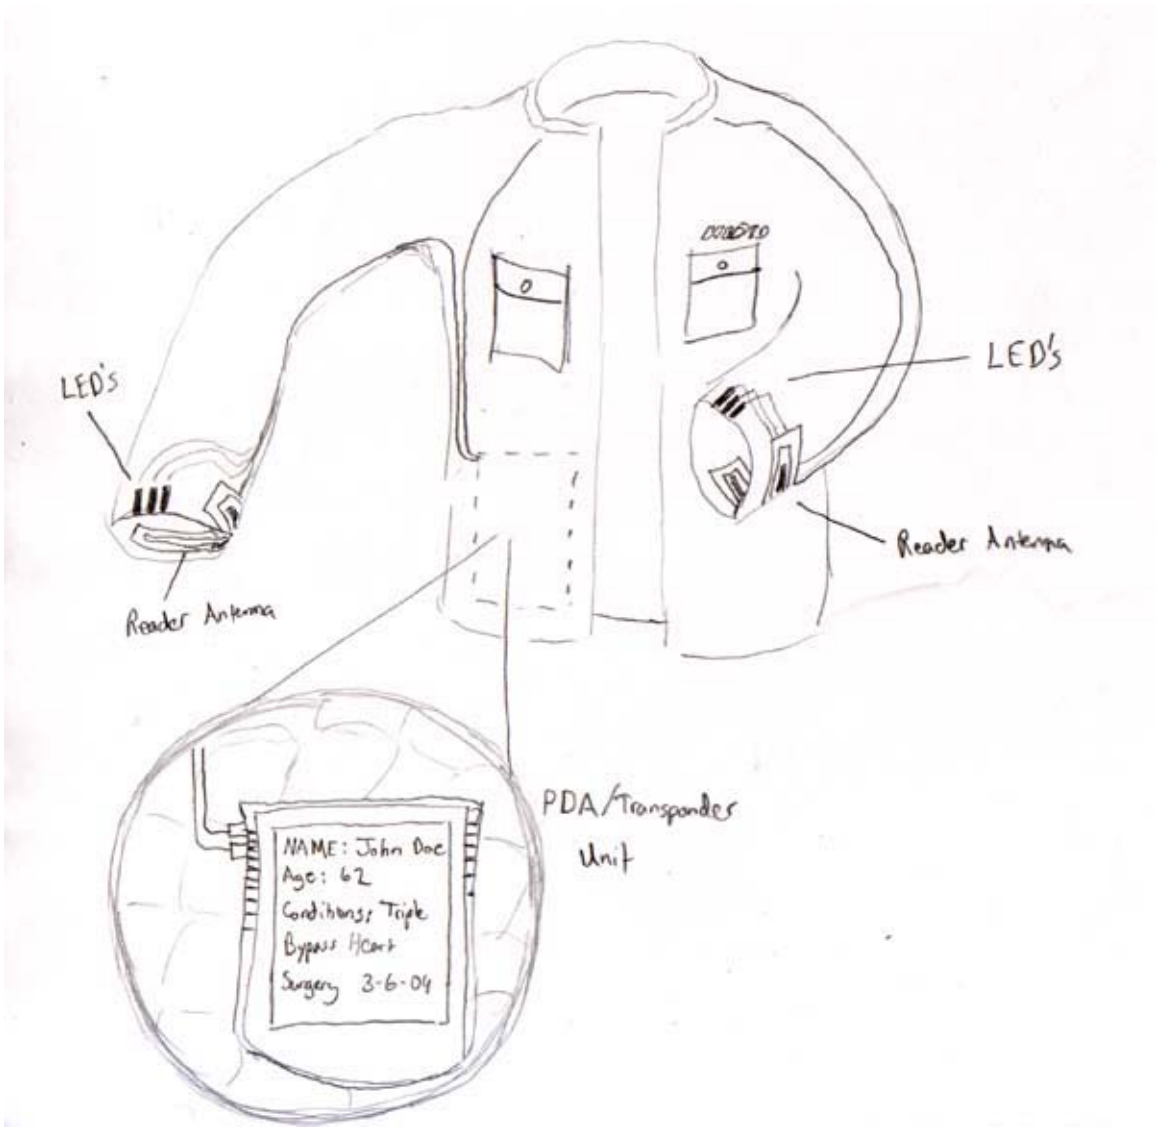 LED's
LED's
Reader Antenna
Reader Antenna
PDA/Transponder
Unit
NAME: John Doe
Age: 62
Conditions: Triple
Bypass Heart
Surgery 3-6-04